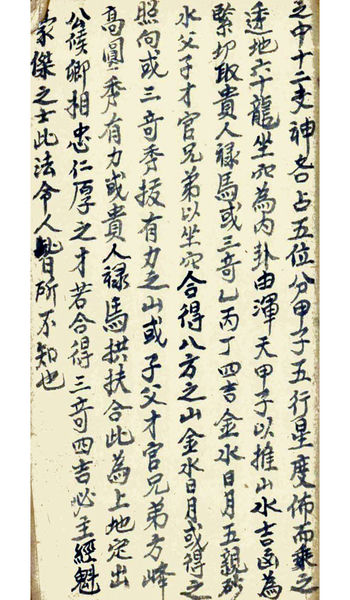 之中十二支神各占五位分甲子五行星度佈而乘之
透地六十龍坐穴為内卦由渾天甲子以推山水吉凶為
緊切取貴人禄馬或三奇乙丙丁四吉金水日月五親砂
水父子才官兄弟以坐穴合得八方之山金水日月或得之
照向或三奇秀拔有力之山或子父才官兄弟方峰
高圓秀有力或貴人禄馬拱扶合此為上地定出
公侯卿相忠仁厚之才若合得三奇四吉必主經魁
豪傑之士此法令人皆所不知也